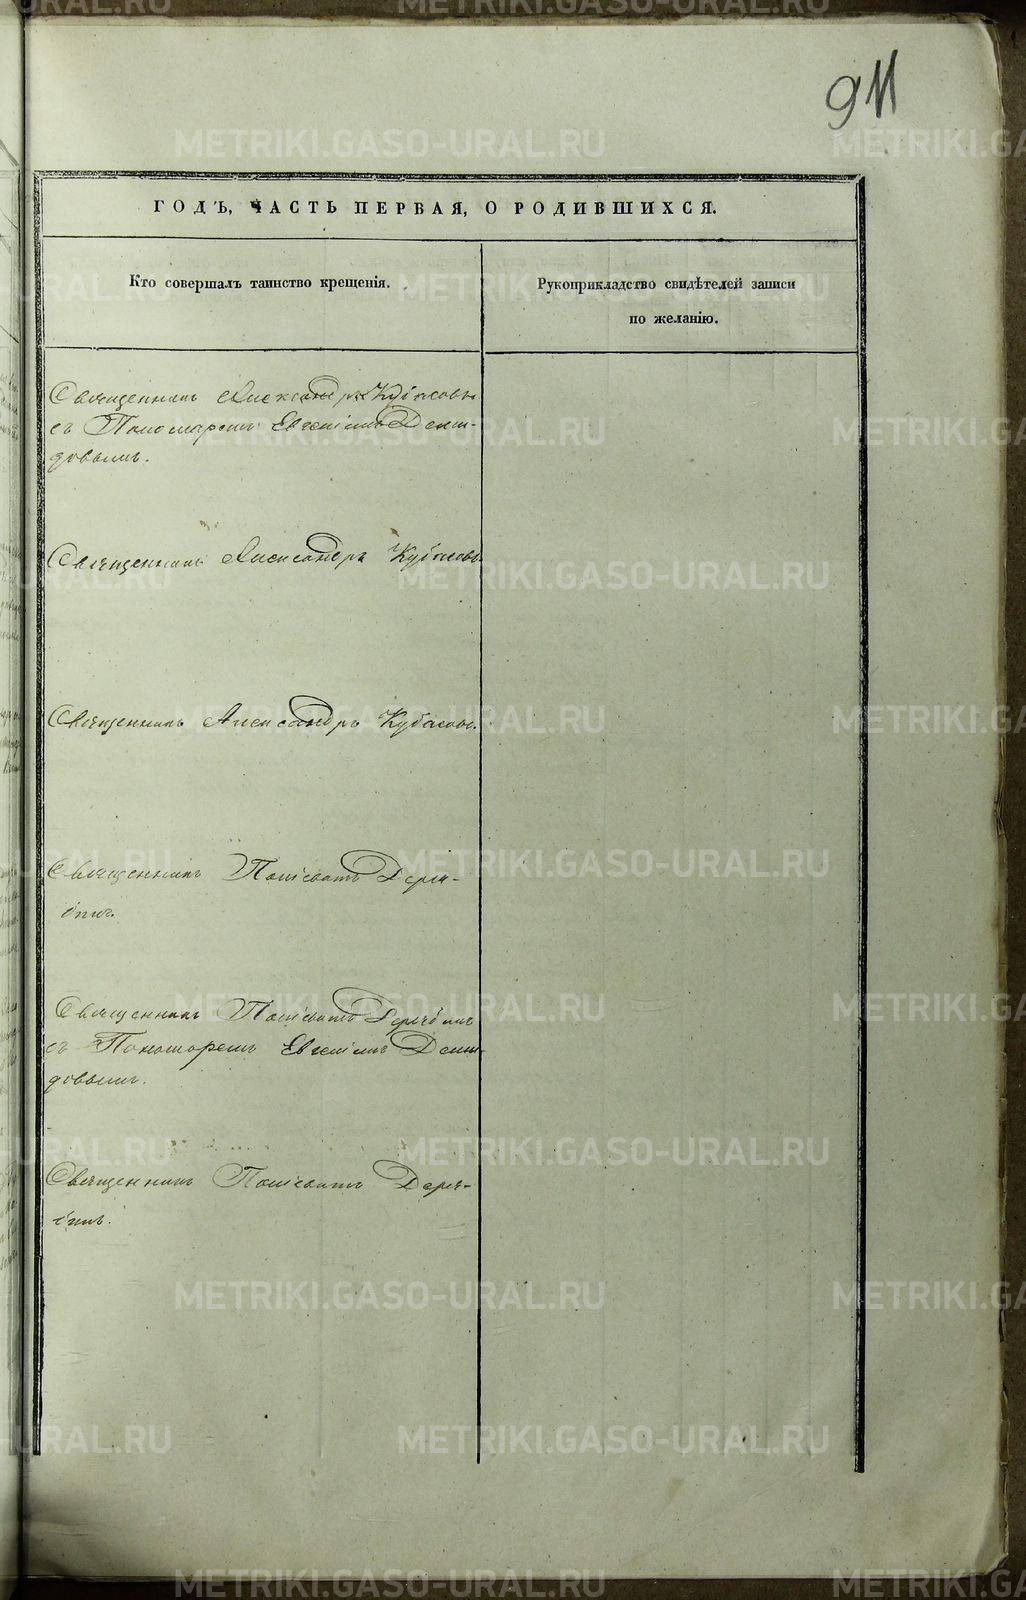 911
ГОДЪ, ЧАСТЬ ПЕРВАЯ, О РОДИВШИХСЯ.
Кто совершалъ таинство крещенія.
Рукоприкладство свидѣтелей записи
по желанію.
Священникъ Александръ Кубасовъ
съ Пономаремъ Евгеніемъ Деми-
довымъ.
Священникъ Александръ Кубасовъ
Священникъ Александръ Кубасовъ.
Священникъ Деря-
бинъ.
Священникъ Дерябинъ
съ Пономаремъ Евгеніемъ Деми-
довымъ.
Священникъ Деря-
бинъ.
METRIKI.GASO-URAL.RU